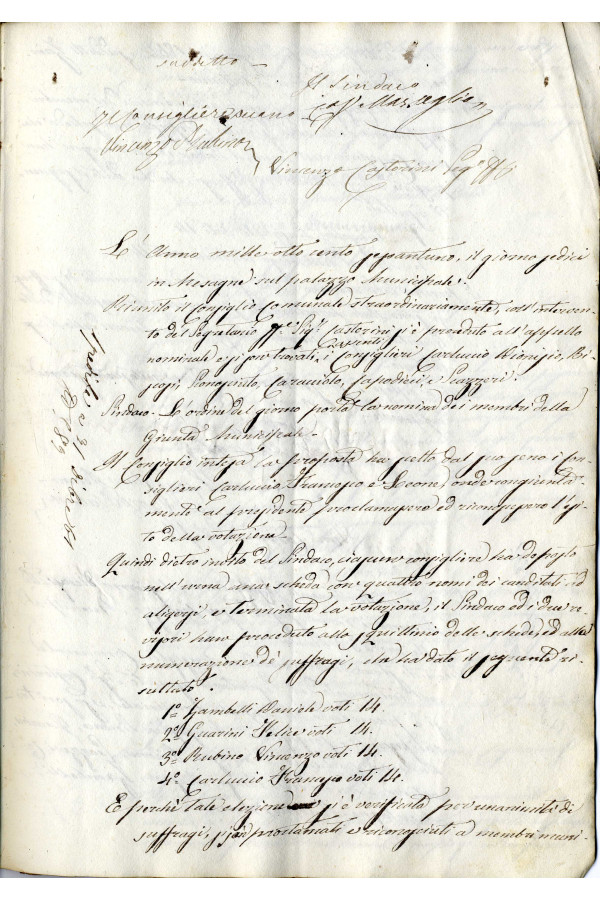 suddetto —
Il Sindaco
Il Consigliere anziano
Vincenzo Rubino
Vincenzo Castorini Seg.º
L'Anno mille otto cento sessantuno, il giorno sedici
in Mesagne sul palazzo Municipale.
Riunito il Consiglio Comunale straordinariamente, coll'interven-
to del Segretario ff.º Sig.r Castorini si è proceduto all'appello
assenti
nominale e si son trovati i Consiglieri Carluccio Dionigio, Bi-
Scazzeri.
Sindaco. L'ordine del giorno porta la nomina dei membri della
Giunta Municipale.
Il Consiglio intesa la proposta ha scelto dal suo seno i Con-
siglieri Carluccio Francesco e onde congiunta-
mente al presidente proclamassero e riconoscessero l'esi-
to della votazione.
Quindi dietro invito del Sindaco, ciascun consigliere ha deposto
nell'urna una scheda con quattro nomi dei candidati ad
eligersi, e terminata la votazione, il Sindaco ed i due re-
visori hanno proceduto allo squittinio delle schede, ed alla
numerazione de' suffragi, che ha dato il seguente ri-
sultato.
1º Zambelli Daniele voti 14.
2º Guarini Felice voti 14.
3º Rubino Vincenzo voti 14.
4º Carluccio Francesco voti 14.
E perchè tale elezione si è verificata per unanimità di
suffragi, si son proclamati e riconosciuti a membri muni-